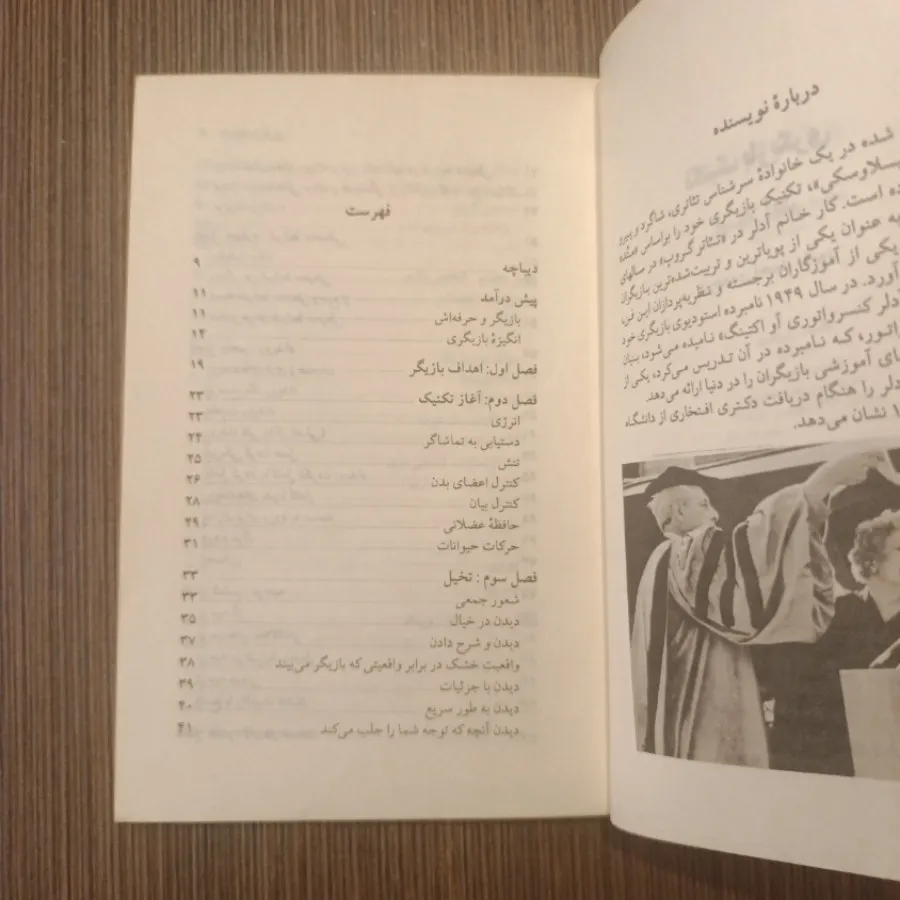 دربارهٔ نویسنده
شده در یک خانوادهٔ سرشناس تئاتری، شاگرد و پیرو
یسلاوسکی»، تکنیک بازیگری خود را براساس «متُد
ده است. کار خانم آدلر در «تئاتر گروپ» در سالهای
به عنوان یکی از پویاترین و تربیت‌شده‌ترین بازیگران
یکی از آموزگاران برجسته و نظریه‌پردازان این فن،
آورد. در سال ۱۹۴۹ نامبرده استودیوی بازیگری خود
آدلر کنسرواتوری آو اکتینگ» نامیده می‌شود، بنیان
اتور، که نامبرده در آن تدریس می‌کرد، یکی از
ای آموزشی بازیگران را در دنیا ارائه می‌دهد.
دلر را هنگام دریافت دکتری افتخاری از دانشگاه
۱ نشان می‌دهد.
فهرست
دیباچه ۹
پیش درآمد ۱۱
بازیگر و حرفه‌اش ۱۱
انگیزهٔ بازیگری ۱۴
فصل اول: اهداف بازیگر ۱۹
فصل دوم: آغاز تکنیک ۲۳
انرژی ۲۳
دستیابی به تماشاگر ۲۴
تنش ۲۵
کنترل اعضای بدن ۲۶
کنترل بیان ۲۸
حافظهٔ عضلانی ۲۹
حرکات حیوانات ۳۱
فصل سوم : تخیل ۳۳
شعور جمعی ۳۳
دیدن در خیال ۳۵
دیدن و شرح دادن ۳۷
واقعیت خشک در برابر واقعیتی که بازیگر می‌بیند ۳۸
دیدن با جزئیات ۳۹
دیدن به طور سریع ۴۰
دیدن آنچه که توجه شما را جلب می‌کند ۴۱